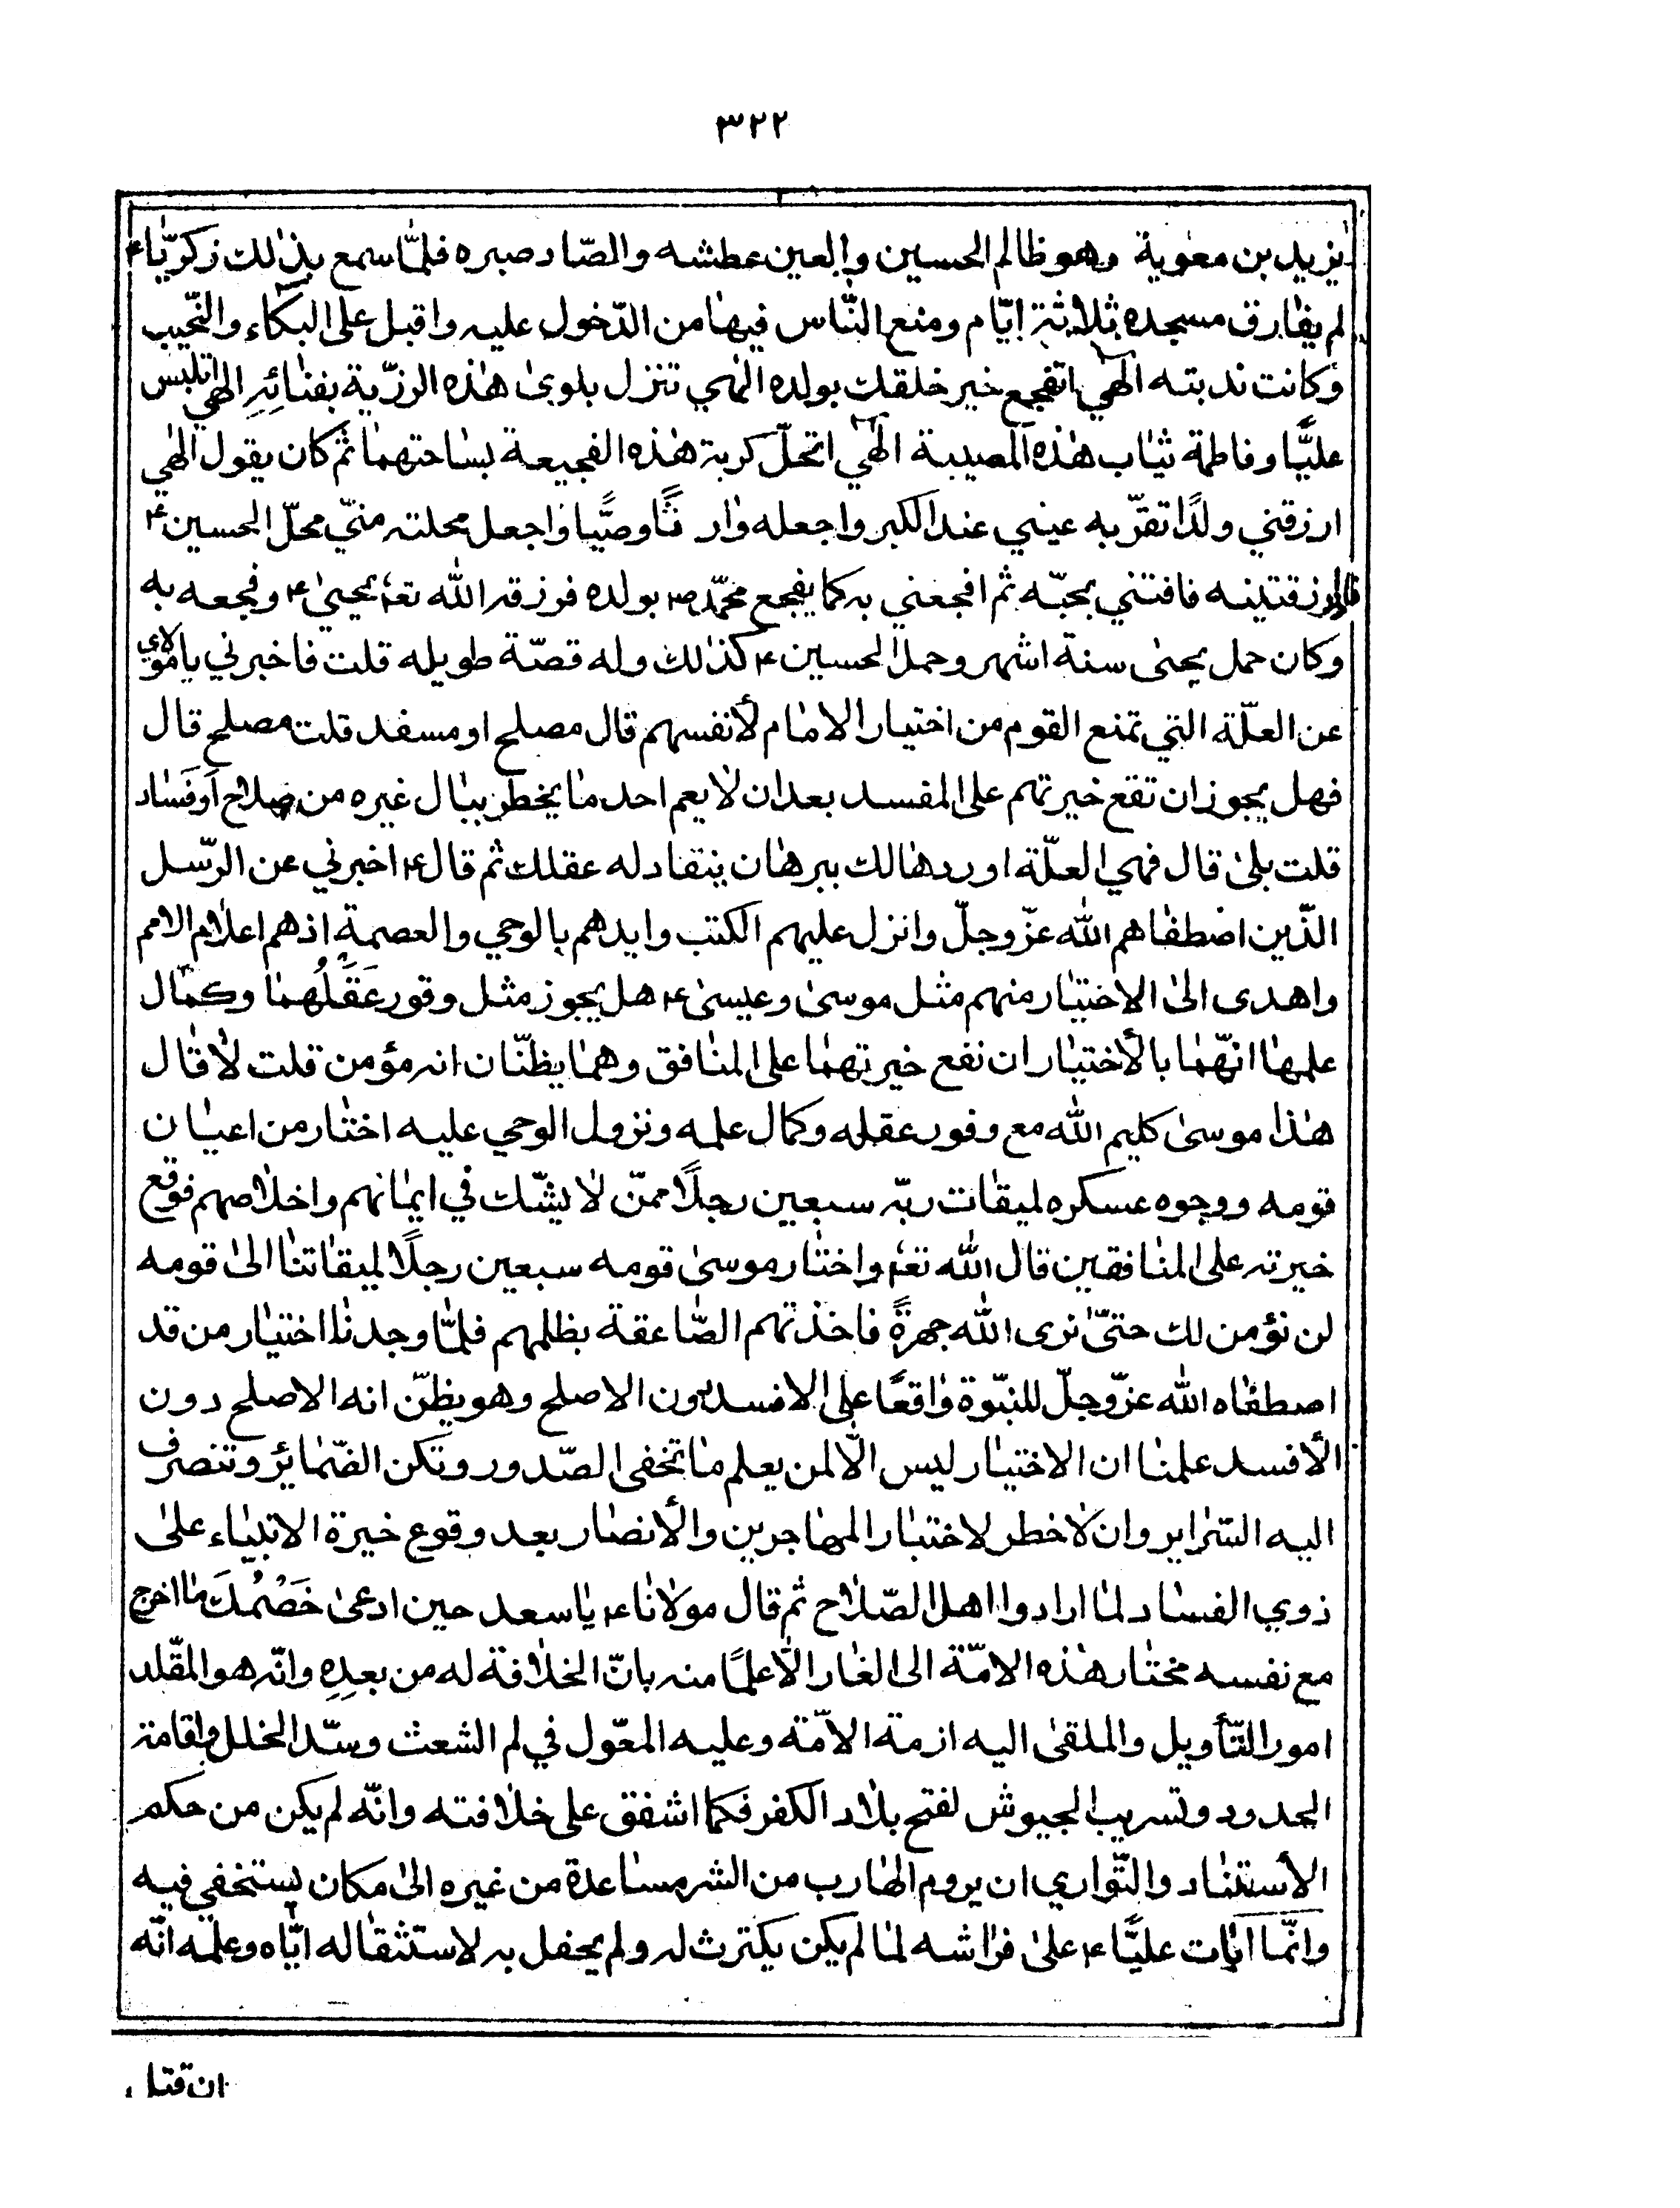 ٣٢٢
يزيد بن معوية وهو ظالم الحسين والعين عطشه والصّاد صبره فلمّا سمع بذلك زكريّا ع
لم يفارق مسجده ثلاثة ايّام ومنع النّاس فيها من الدّخول عليه واقبل على البكاء والنّحيب
وكانت ندبته الهي اتفجع خير خلقك بولده الهي تنزل بلوى هذه الرزّية بفنائِهِ الهي اتلبس
عليًّا وفاطمة ثياب هذه المصيبة الهي اتحلّ كربة هذه الفجيعة بساحتهما ثم كان يقول الهي
ارزقني ولدًا تقرّ به عيني عند الكبر واجعله وارثًا وصيًّا واجعل محلته منّي محلّ الحسين ع
فاذا رزقتنيه فافتنّي بحبّه ثم افجعني به كما يفجع محمّد ص بولده فرزقه الله تع يحيى ع وفجعه به
وكان حمل يحيى ستة اشهر وحمل الحسين ع كذلك وله قصّة طويله قلت فاخبرني يا مولاي
عن العلّة التي تمنع القوم من اختيار الامام لأنفسهم قال مصلح او مفسد قلت مصلح قال
فهل يجوز ان تقع خيرتهم على المفسد بعد ان لا يعم احد ما يخطر ببال غيره من صلاح أو فَساد
قلت بلى قال فهي العلّة اوردها لك ببرهان ينقاد له عقلك ثم قال ع اخبرني عن الرّسل
الذّين اصطفاهم الله عزّ وجلّ وانزل عليهم الكتب وايدهم بالوحي والعصمة اذ هم اعلام الامم
واهدى الى الاختيار منهم مثل موسى وعيسى ع هل يجوز مثل وقور عَقَلُهما وكمال
علمها انّهما بالأختيار ان نفع خيرتهما على المنافق وهما يظنّان انه مؤمن قلت لا قال
هذا موسى كليم الله مع وفور عقله وكمال علمه ونزول الوحي عليه اختار من اعيان
قومه ووجوه عسكره لميقات ربّه سبعين رجلًا ممّن لا يشّك في ايمانهم واخلاصهم فوقع
خيرته على المنافقين قال الله تع واختار موسى قومه سبعين رجلًا لميقاتنا الى قومه
لن نؤمن لك حتىّ نرى الله جهرةً فاخذتهم الصّاعقة بظلمهم فلمّا وجدنا اختيار من قد
اصطفاه الله عزّ وجلّ للنبّوة واقعًا على الافسد دون الاصلح وهو يظنّ انه الاصلح دون
الأفسد علمنا ان الاختيار ليس الّا لمن يعلم ما تخفى الصّدور وتكن الضّمائر وتنصرف
اليه السّراير وان لا خطر لاختبار المهاجرين والأنصار بعد وقوع خيرة الانبياء على
ذوي الفساد لما ارادوا اهل الصّلاح ثم قال مولانا ع يا سعد حين ادعى خَصْمُكَ ما اخرج
مع نفسه مختار هذه الامّة الى الغار الّا علمًا منه بانّ الخلافة له من بعدِهِ وانّه هو المقّلد
امور التّأويل والملقى اليه ازمة الامّة وعليه المعّول في لم الشعث وسّد الخلل واقامة
الحدود وتسريب الجيوش لفتح بلاد الكفر فكما اشفق على خلافته وانّه لم يكن من حكم
الأستتار والتّواري ان يروم الهارب من الشر مساعدة من غيره الى مكان يستخفي فيه
وانّما ابات عليًّا ع على فراشه لما لم يكن يكترث له ولم يحفل به لاستثقاله ايّاه وعلمه انّه
ان قتل